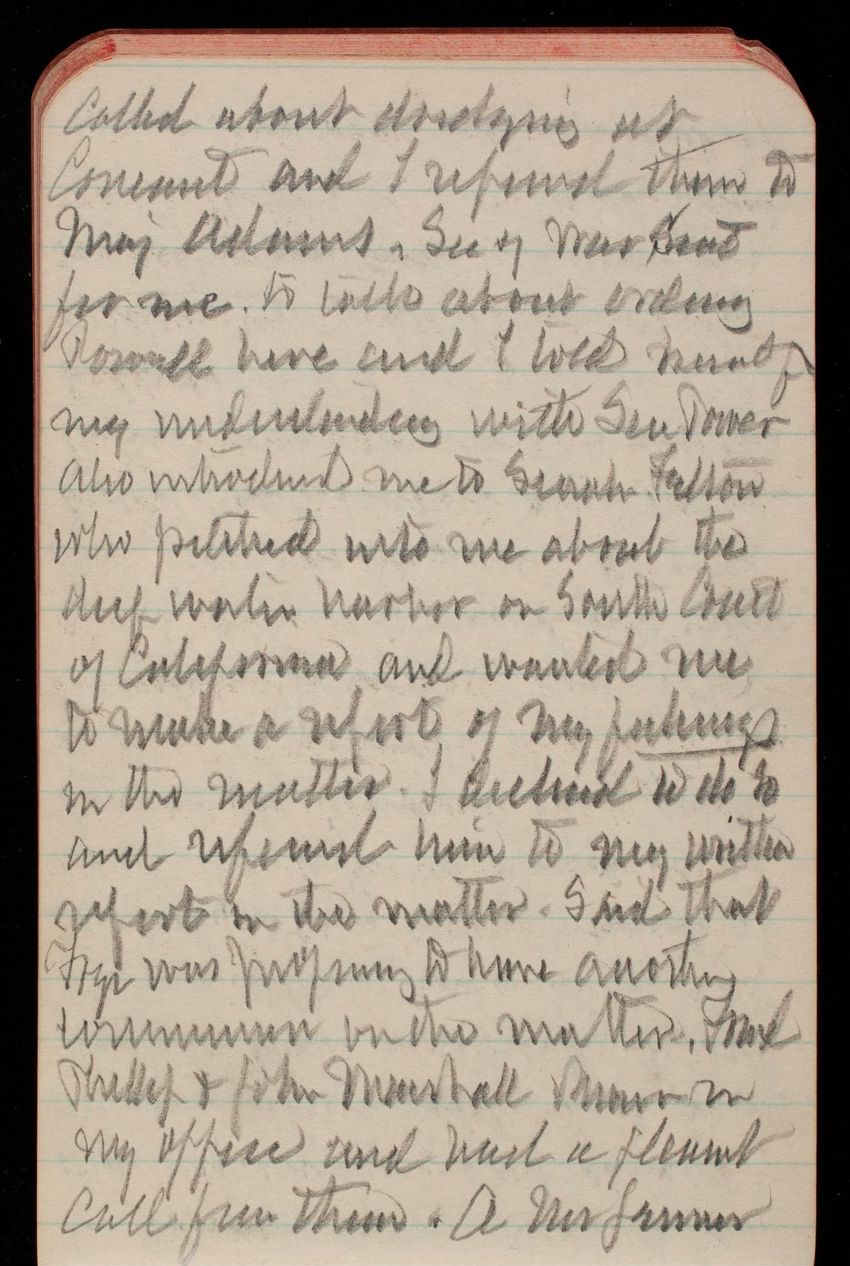 Called about dredging at
Coneaut and I referred them to
Maj Adams. Secy War Sent
for me. to talk about ordering
Powell here and I told him of
my understanding with Sen Power
Also introduced me to Senator Felton
who pitched into me about the
deep water harbor on South Coast
of California and wanted me
to make a report of my feelings
in the matter. I declined to do so
and referred him to my written
report in the matter. Said that
Frye was proposing to have another
commission on the matter. Fred
Phillip & John Marshall Brown in
my office and had a pleasant
Call from them. A Mr